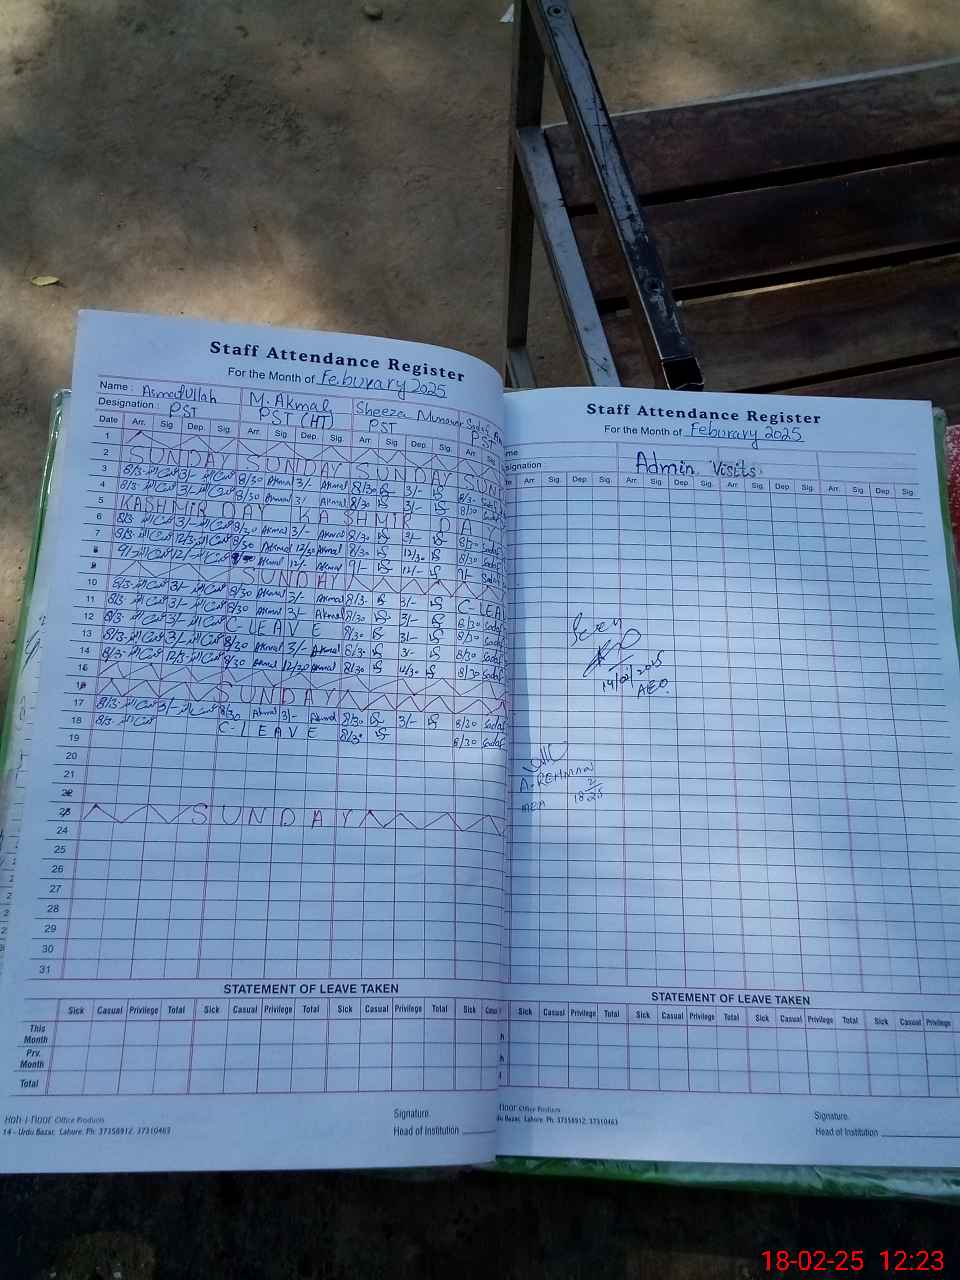 Staff Attendance Register
For the Month of Feburary 2025
Name : Asmatullah M. Akmal Sheeza Munawar Sadaf
Designation : PST PST (HT) PST PST
Date Arr. Sig Dep. Sig. Arr. Sig. Dep. Sig. Arr. Sig. Dep. Sig. Arr. Sig.
1
2 SUNDAY SUNDAY SUNDAY SUND
3 8/30 Akmal 3/- Akmal 8/30 3/- 8/30 Sadaf
4 8/30 Akmal 3/- Akmal 8/30 3/- 8/30 Sadaf
5 KASHMIR DAY KASHMIR DA
6 8/30 Akmal 3/- Akmal 8/30 3/- 8/30 Sadaf
7 8/30 Akmal 12/30 Akmal 8/30 12/30 8/30 Sadaf
8 9/- 12/- Akmal 12/- Akmal 9/- 12/- 9/- Sadaf
9 SUNDAY
10 8/30 Akmal 3/- Akmal 3/- C-LEA
11 8/30 Akmal 3/- Akmal 8/30 3/- 8/30 Sadaf
12 C-LEAVE 8/30 3/- 8/30 Sadaf
13 8/30 Akmal 3/- Akmal 3/- 8/30 Sadaf
14 8/30 Akmal 12/30 Akmal 8/30 8/30 Sadaf
15
16 SUNDAY
17 8/30 Akmal 3/- Akmal 8/30 3/- 8/30 Sadaf
18 C-LEAVE 8/30 8/30 Sadaf
19
20
21
22
23 SUNDAY
24
25
26
27
28
29
30
31
STATEMENT OF LEAVE TAKEN
Sick Casual Privilege Total Sick Casual Privilege Total Sick Casual Privilege Total Sick
This Month
Prv. Month
Total
Koh-i-Noor Office Products
14 - Urdu Bazar, Lahore. Ph: 37358912, 37310463
Signature.
Head of Institution
Staff Attendance Register
For the Month of Feburary 2025
Admin Visits.
Arr. Sig. Dep. Sig. Arr. Sig. Dep. Sig. Arr. Sig. Dep Sig. Arr. Sig. Dep. Sig.
Seen
14/02/2025
AEO.
A. REHMAN
MEA 18/2/25
STATEMENT OF LEAVE TAKEN
Sick Casual Privilege Total Sick Casual Privilege Total Sick Casual Privilege Total Sick Casual Privilege
Noor Office Products
du Bazar, Lahore. Ph: 37358912, 37310463
Signature.
Head of Institution
18-02-25 12:23